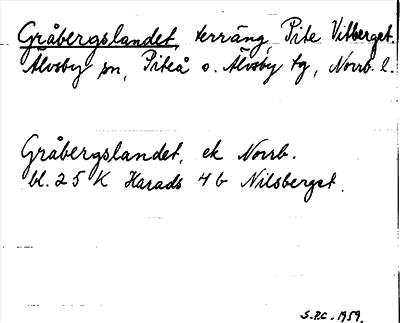 Gråbergslandet, terräng, Pite Vitberget.
Älvsby sn, Piteå o. Älvsby tg, Norrb. l.
Gråbergslandet, ek Norrb.
bl. 25 K Harads 4 b Nilsberget.
S.P.C. 1959.